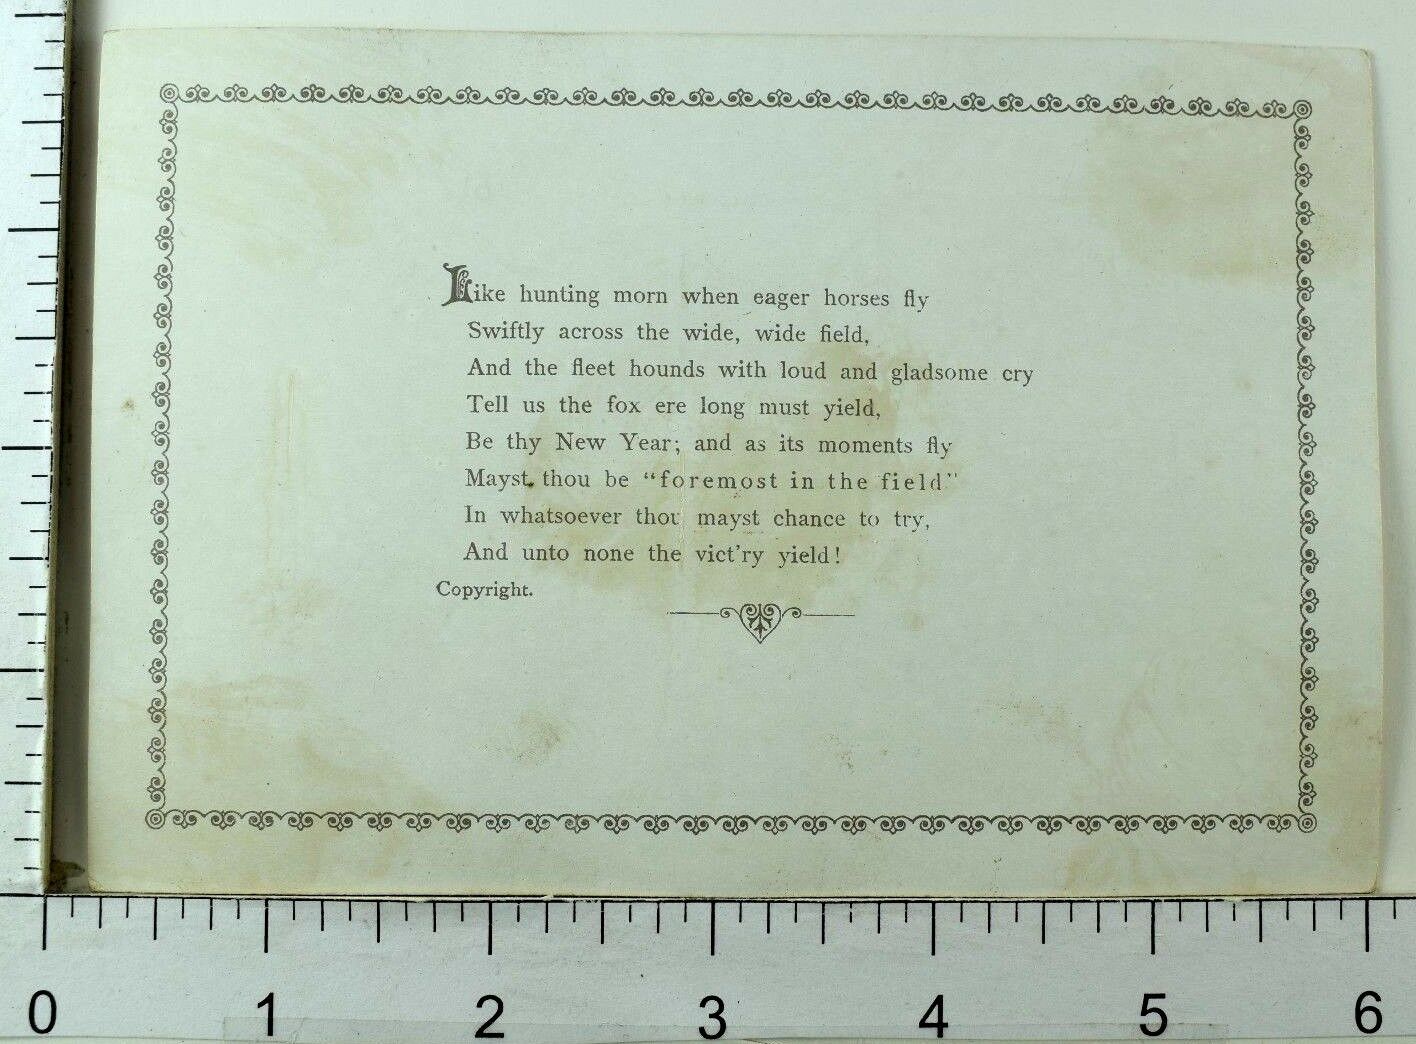 Like hunting morn when eager horses fly
Swiftly across the wide, wide field,
And the fleet hounds with loud and gladsome cry
Tell us the fox ere long must yield,
Be thy New Year; and as its moments fly
Mayst thou be "foremost in the field"
In whatsoever thou mayst chance to try,
And unto none the vict'ry yield!
Copyright.
0 1 2 3 4 5 6